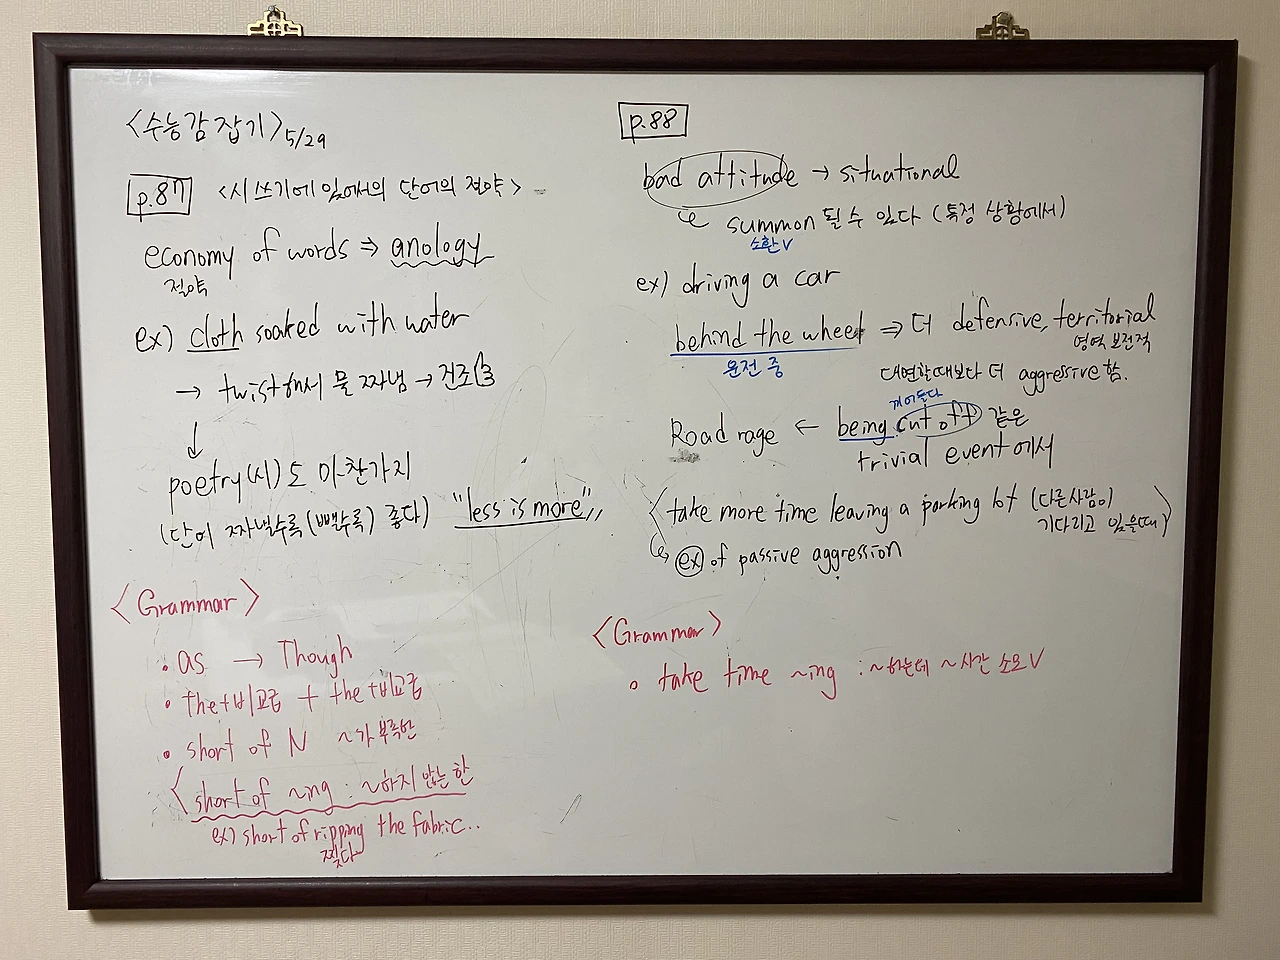 <수능감잡기> 5/29
p.87 <시 쓰기에 있어서의 단어의 절약>
economy of words ⇒ anology
절약
ex) cloth soaked with water
→ twist해서 물 짜냄 → 건조
↓
poetry(시)도 마찬가지
(단어 짜낼수록(뺄수록) 좋다) "less is more"
<Grammar>
• as → Though
• the+비교급 + the+비교급
• short of N ~가 부족한
< short of ~ing : ~하지 않는 한
ex) short of ripping the fabric..
찢다
p.88
bad attitude → situational
summon 될 수 있다 (특정 상황에서)
소환V
ex) driving a car
behind the wheel ⇒ 더 defensive, territorial
운전 중
영역 보전적
대면할때보다 더 aggressive 함.
끼어들다
Road rage ← being cut off 같은
trivial event에서
<take more time leaving a parking lot (다른사람이
기다리고 있을때)>
ex of passive aggression
<Grammar>
• take time ~ing : ~하는데 ~시간 소요V